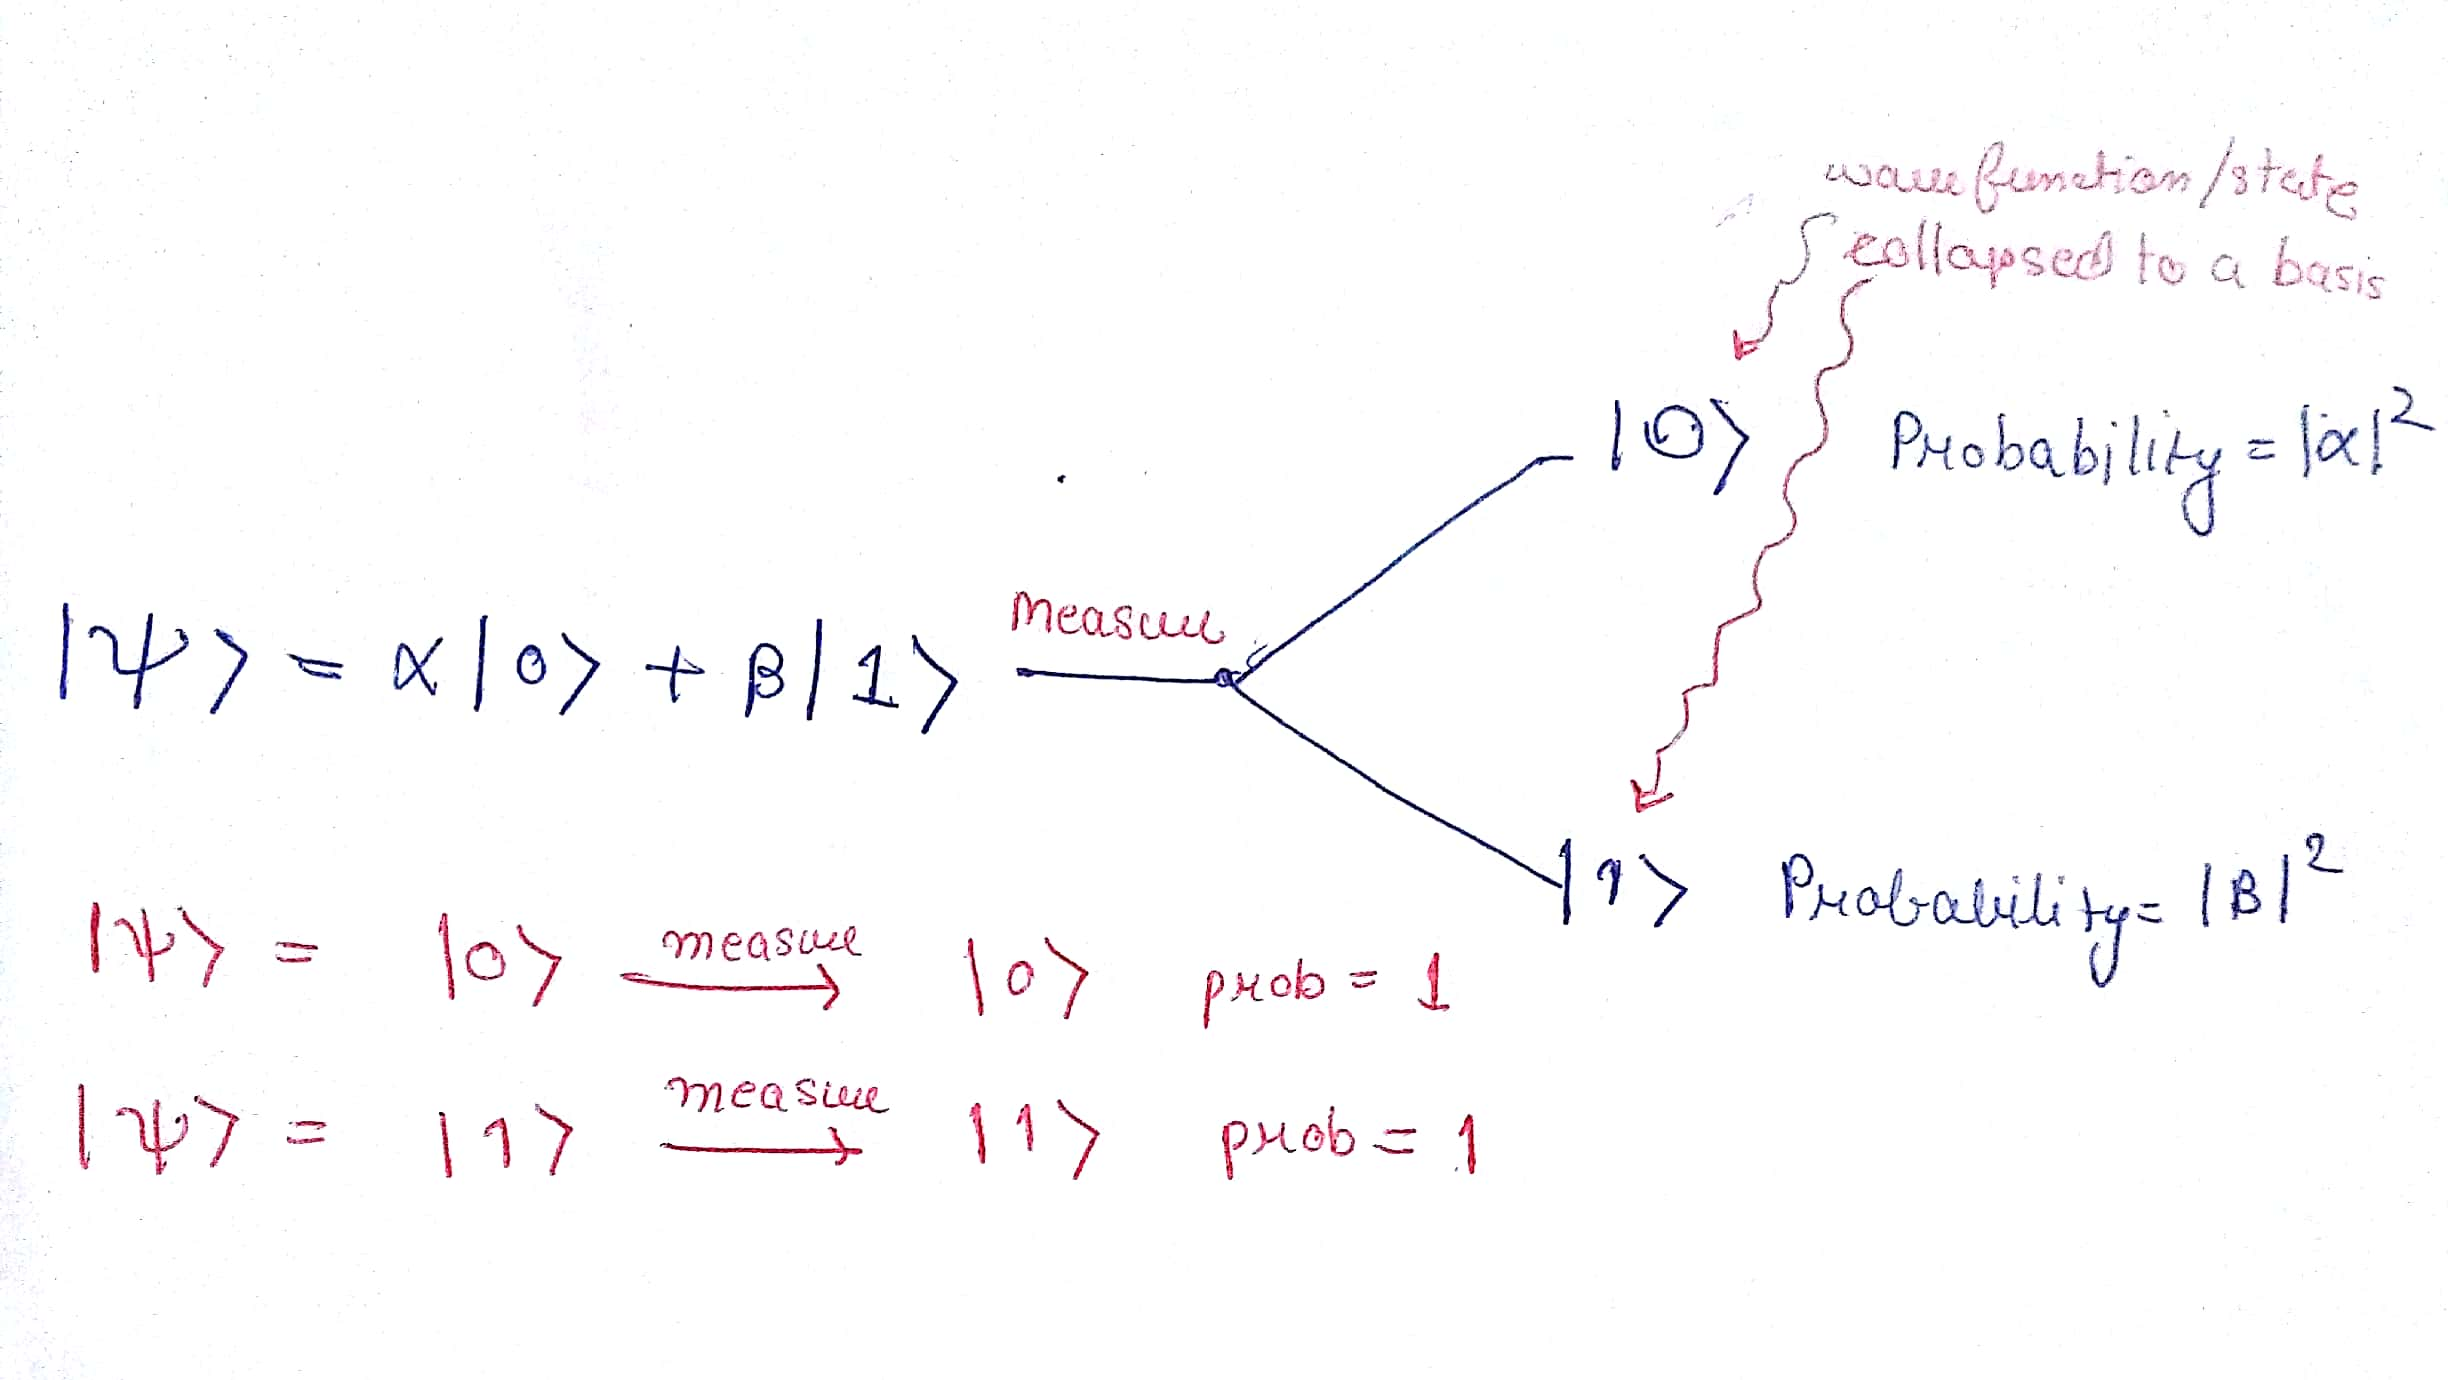 wavefunction/state
collapsed to a basis
|0⟩ Probability = |α|²
Measure
|ψ⟩ = α|0⟩ + β|1⟩
|1⟩ Probability = |β|²
|ψ⟩ = |0⟩ measure → |0⟩ prob = 1
|ψ⟩ = |1⟩ measure → |1⟩ prob = 1